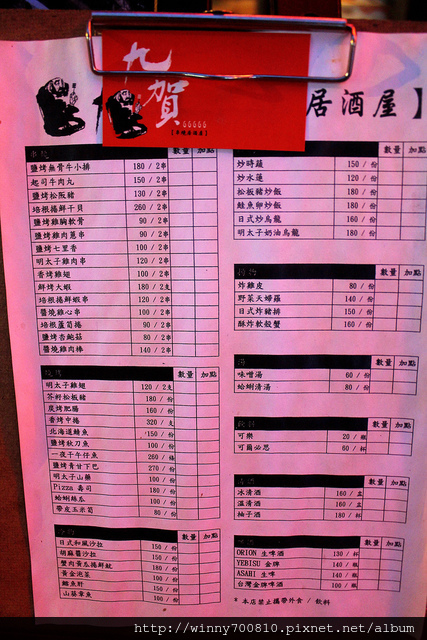 九
賀
居酒屋】
串燒 數量 加點
鹽烤無骨牛小排 180 / 2串
起司牛肉丸 150 / 2串
鹽烤松阪豬 130 / 2串
培根捲鮮干貝 260 / 2串
鹽烤雞胸軟骨 90 / 2串
鹽烤雞肉蔥串 90 / 2串
鹽烤七里香 100 / 2串
明太子雞肉串 120 / 2串
香烤雞翅 100 / 2串
鮮烤大蝦 180 / 2支
培根捲鮮蝦串 120 / 2串
醬燒雞心串 100 / 2串
培根蘆筍捲 90 / 2串
鹽烤杏鮑菇 80 / 2串
醬燒雞肉棒 140 / 2串
數量 加點
明太子雞翅 120 / 2支
芥籽松板豬 180 / 份
炭烤肥腸 160 / 份
香烤中捲 320 / 支
北海道鯡魚 150 / 份
鹽烤秋刀魚 100 / 份
一夜干午仔魚 260 / 條
鹽烤青甘下巴 270 / 份
明太子山藥 100 / 份
Pizza 壽司 180 / 份
蛤蜊絲瓜 100 / 份
帶皮玉米筍 80 / 份
數量 加點
日式和風沙拉 150 / 份
胡麻醬沙拉 150 / 份
蟹肉黃瓜捲鮮蚊 180 / 份
黃金泡菜 100 / 份
鱈魚肝 150 / 份
山葵章魚 100 / 份
數量 加點
炒時蔬 150 / 份
炒水蓮 120 / 份
松板豬炒飯 180 / 份
鮭魚卵炒飯 180 / 份
日式炒烏龍 160 / 份
明太子奶油烏龍 180 / 份
炸物 數量 加點
炸雞皮 80 / 份
野菜天婦羅 140 / 份
日式炸豬排 150 / 份
酥炸軟殼蟹 160 / 份
湯 數量 加點
味噌湯 60 / 份
蛤蜊清湯 80 / 份
飲料 數量 加點
可樂 20 / 瓶
可爾必思 60 / 杯
清酒 數量 加點
冰清酒 160 / 壺
溫清酒 160 / 壺
柚子酒 180 / 杯
啤酒 數量 加點
ORION 生啤酒 130 / 杯
YEBISU 金牌 140 / 瓶
ASAHI 生啤 140 / 瓶
台灣金牌啤酒 100 / 瓶
* 本店禁止攜帶外食 / 飲料
http://winny700810.pixnet.net/album